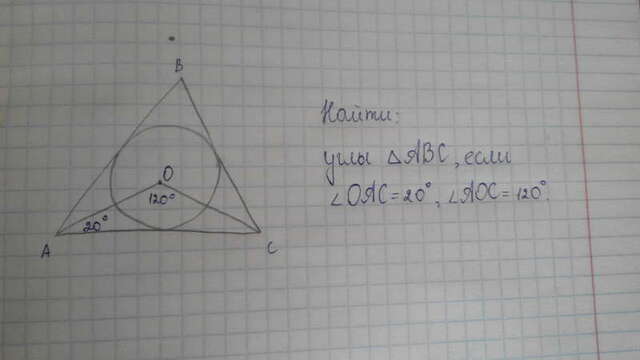 B
O
120°
20°
A
C
Найти:
углы △ABC, если
∠OAC=20°, ∠AOC=120°.